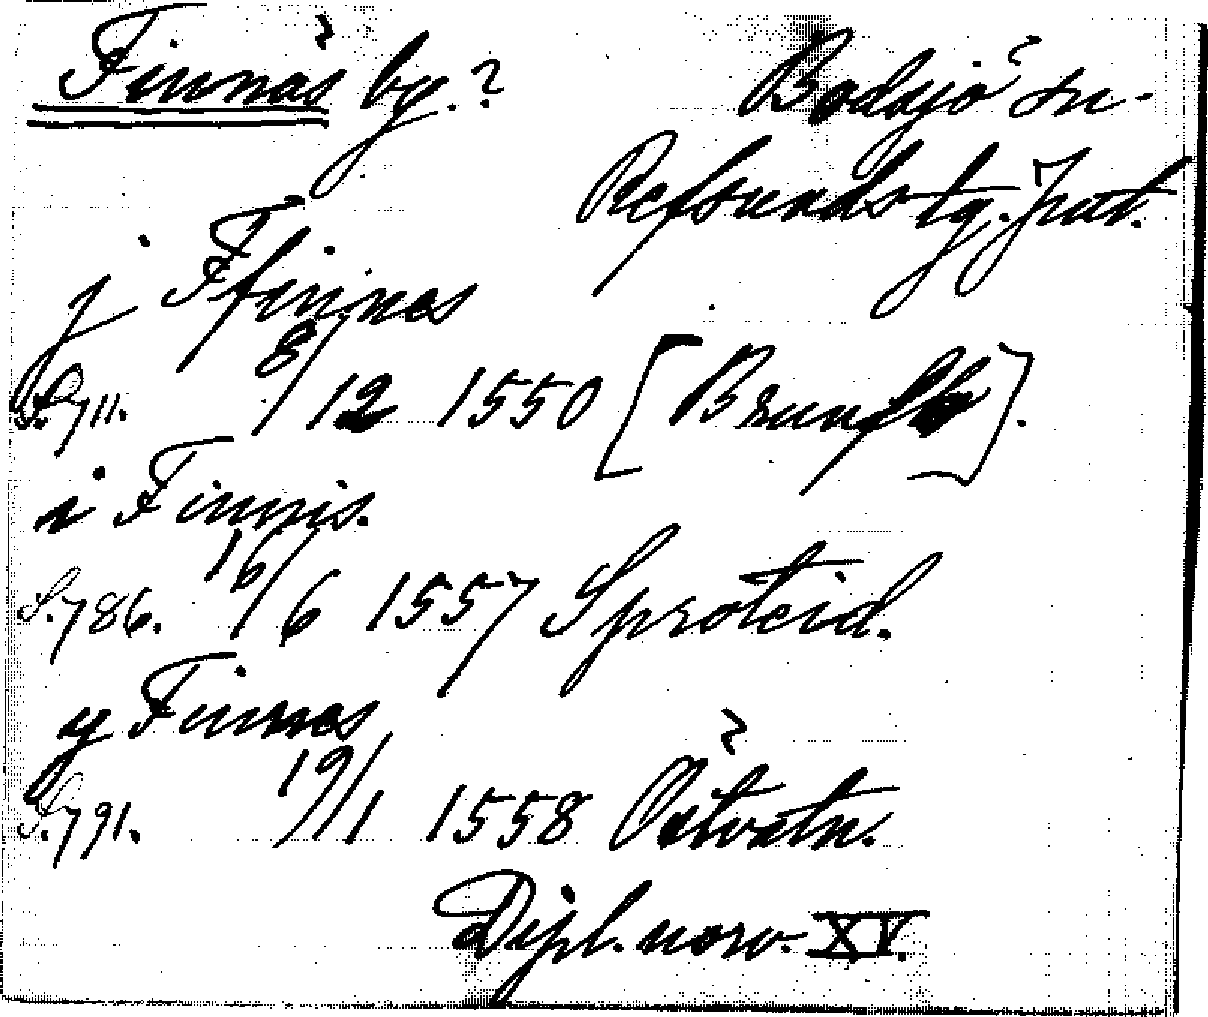 Finnäs by.? Bodsjö sn.
Refsunds tg. Jmtl.
j Ffinnes
S. 711. 8/12 1550 [Brunflo].
i Finnis.
S. 786. 16/6 1557 Sproteid.
y Finnes
S. 791. 19/1 1558 Östvatn.
Dipl. norv. XV.